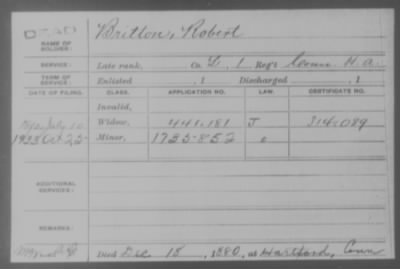 DEAD
NAME OF SOLDIER: Britton, Robert
SERVICE: Late rank, Co. D, 1 Reg't Conn H. A.
TERM OF SERVICE: Enlisted , 1 Discharged , 1
DATE OF FILING. CLASS. APPLICATION NO. LAW. CERTIFICATE NO.
Invalid,
July 10 Widow, 441.181 J 314.089
Oct 25 Minor, 1735.852
ADDITIONAL SERVICES:
REMARKS:
Died Dec 18, 1880, at Hartford, Conn